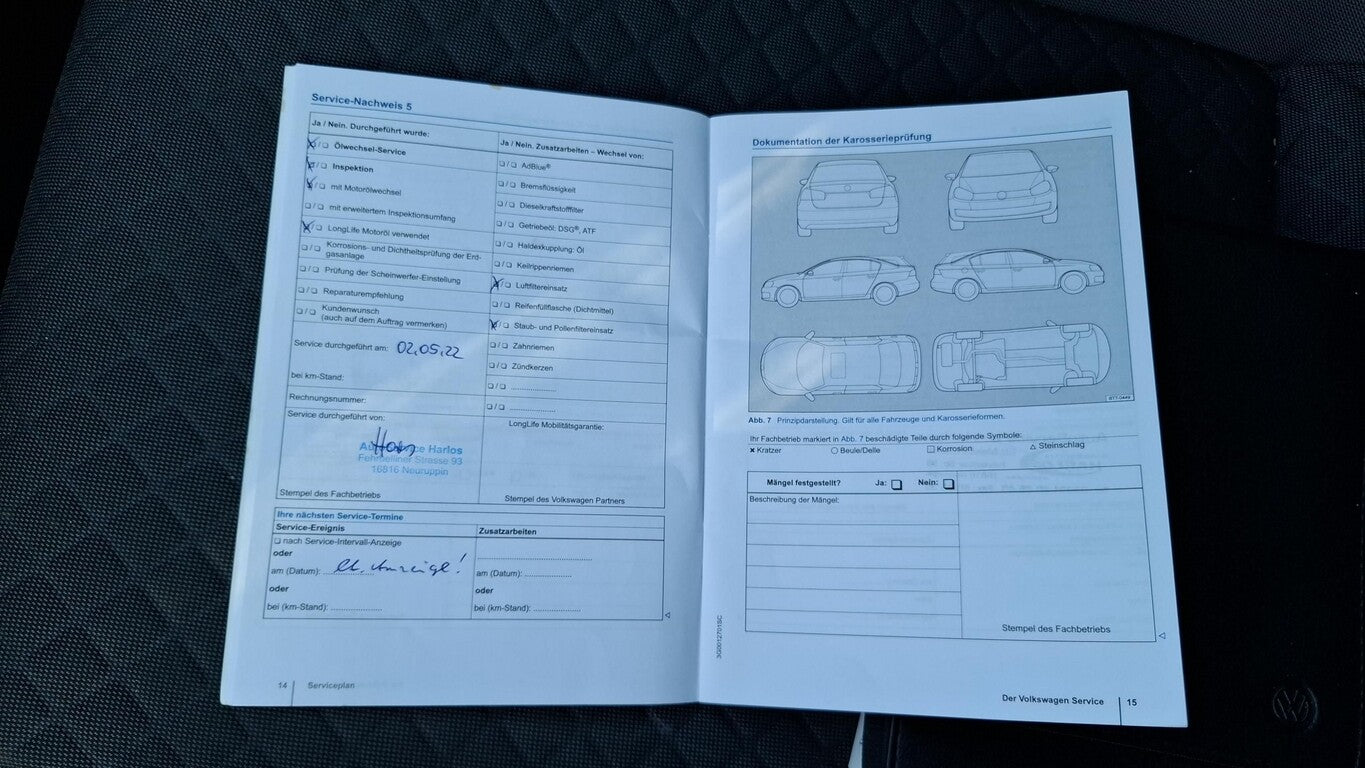 Service-Nachweis 5
Ja / Nein. Durchgeführt wurde:
☒/❏ Ölwechsel-Service
☒/❏ Inspektion
☒/❏ mit Motorölwechsel
❏/❏ mit erweitertem Inspektionsumfang
☒/❏ LongLife Motoröl verwendet
❏/❏ Korrosions- und Dichtheitsprüfung der Erd-
gasanlage
❏/❏ Prüfung der Scheinwerfer-Einstellung
❏/❏ Reparaturempfehlung
❏/❏ Kundenwunsch
(auch auf dem Auftrag vermerken)
Service durchgeführt am: 02.05.22
bei km-Stand:
Rechnungsnummer:
Service durchgeführt von:
Harlos
Fehrbelliner Strasse 93
16816 Neuruppin
Stempel des Fachbetriebs
Ja / Nein. Zusatzarbeiten – Wechsel von:
❏/❏ AdBlue®
❏/❏ Bremsflüssigkeit
❏/❏ Dieselkraftstofffilter
❏/❏ Getriebeöl: DSG®, ATF
❏/❏ Haldexkupplung: Öl
❏/❏ Keilrippenriemen
☒/❏ Luftfiltereinsatz
❏/❏ Reifenfüllflasche (Dichtmittel)
☒/❏ Staub- und Pollenfiltereinsatz
❏/❏ Zahnriemen
❏/❏ Zündkerzen
❏/❏ ....................
❏/❏ ....................
LongLife Mobilitätsgarantie:
Stempel des Volkswagen Partners
Ihre nächsten Service-Termine
Service-Ereignis
❏ nach Service-Intervall-Anzeige
oder
am (Datum): lt. Anzeige!
oder
bei (km-Stand): ....................
Zusatzarbeiten
........................................
am (Datum): ....................
oder
bei (km-Stand): ....................
14 Serviceplan
Dokumentation der Karosserieprüfung
BTT-0449
Abb. 7 Prinzipdarstellung. Gilt für alle Fahrzeuge und Karosserieformen.
Ihr Fachbetrieb markiert in Abb. 7 beschädigte Teile durch folgende Symbole:
✖ Kratzer ○ Beule/Delle □ Korrosion △ Steinschlag
Mängel festgestellt? Ja: ❏ Nein: ❏
Beschreibung der Mängel:
Stempel des Fachbetriebs
3G0012701SC
Der Volkswagen Service 15